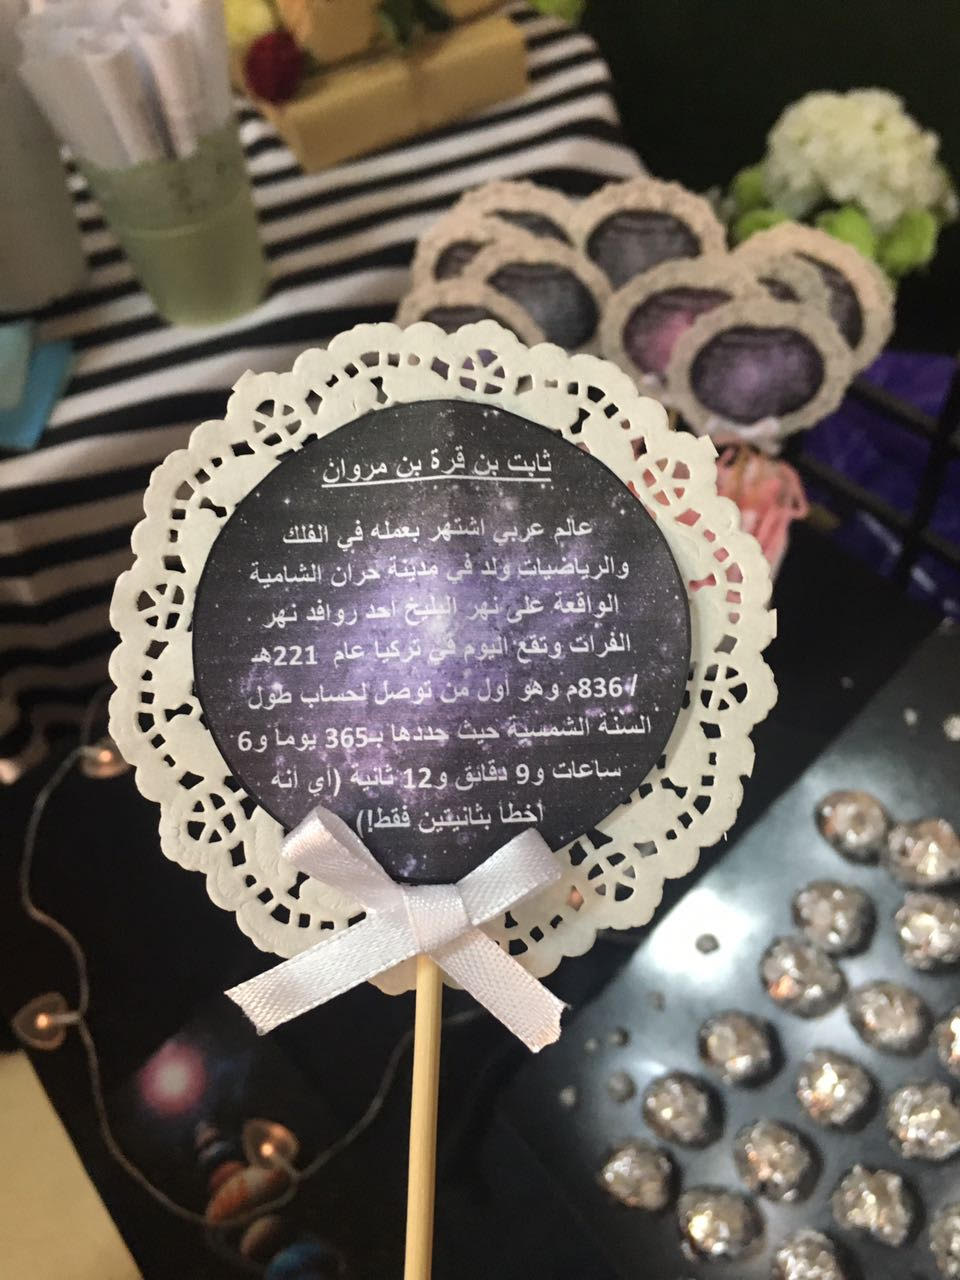 ثابت بن قرة بن مروان
عالم عربي اشتهر بعمله في الفلك
والرياضيات ولد في مدينة حران الشامية
الواقعة على نهر البليخ احد روافد نهر
الفرات وتقع اليوم في تركيا عام 221هـ
/ 836م وهو أول من توصل لحساب طول
السنة الشمسية حيث حددها بـ365 يوماً و6
ساعات و9 دقائق و12 ثانية (أي أنه
أخطأ بثانيتين فقط!)